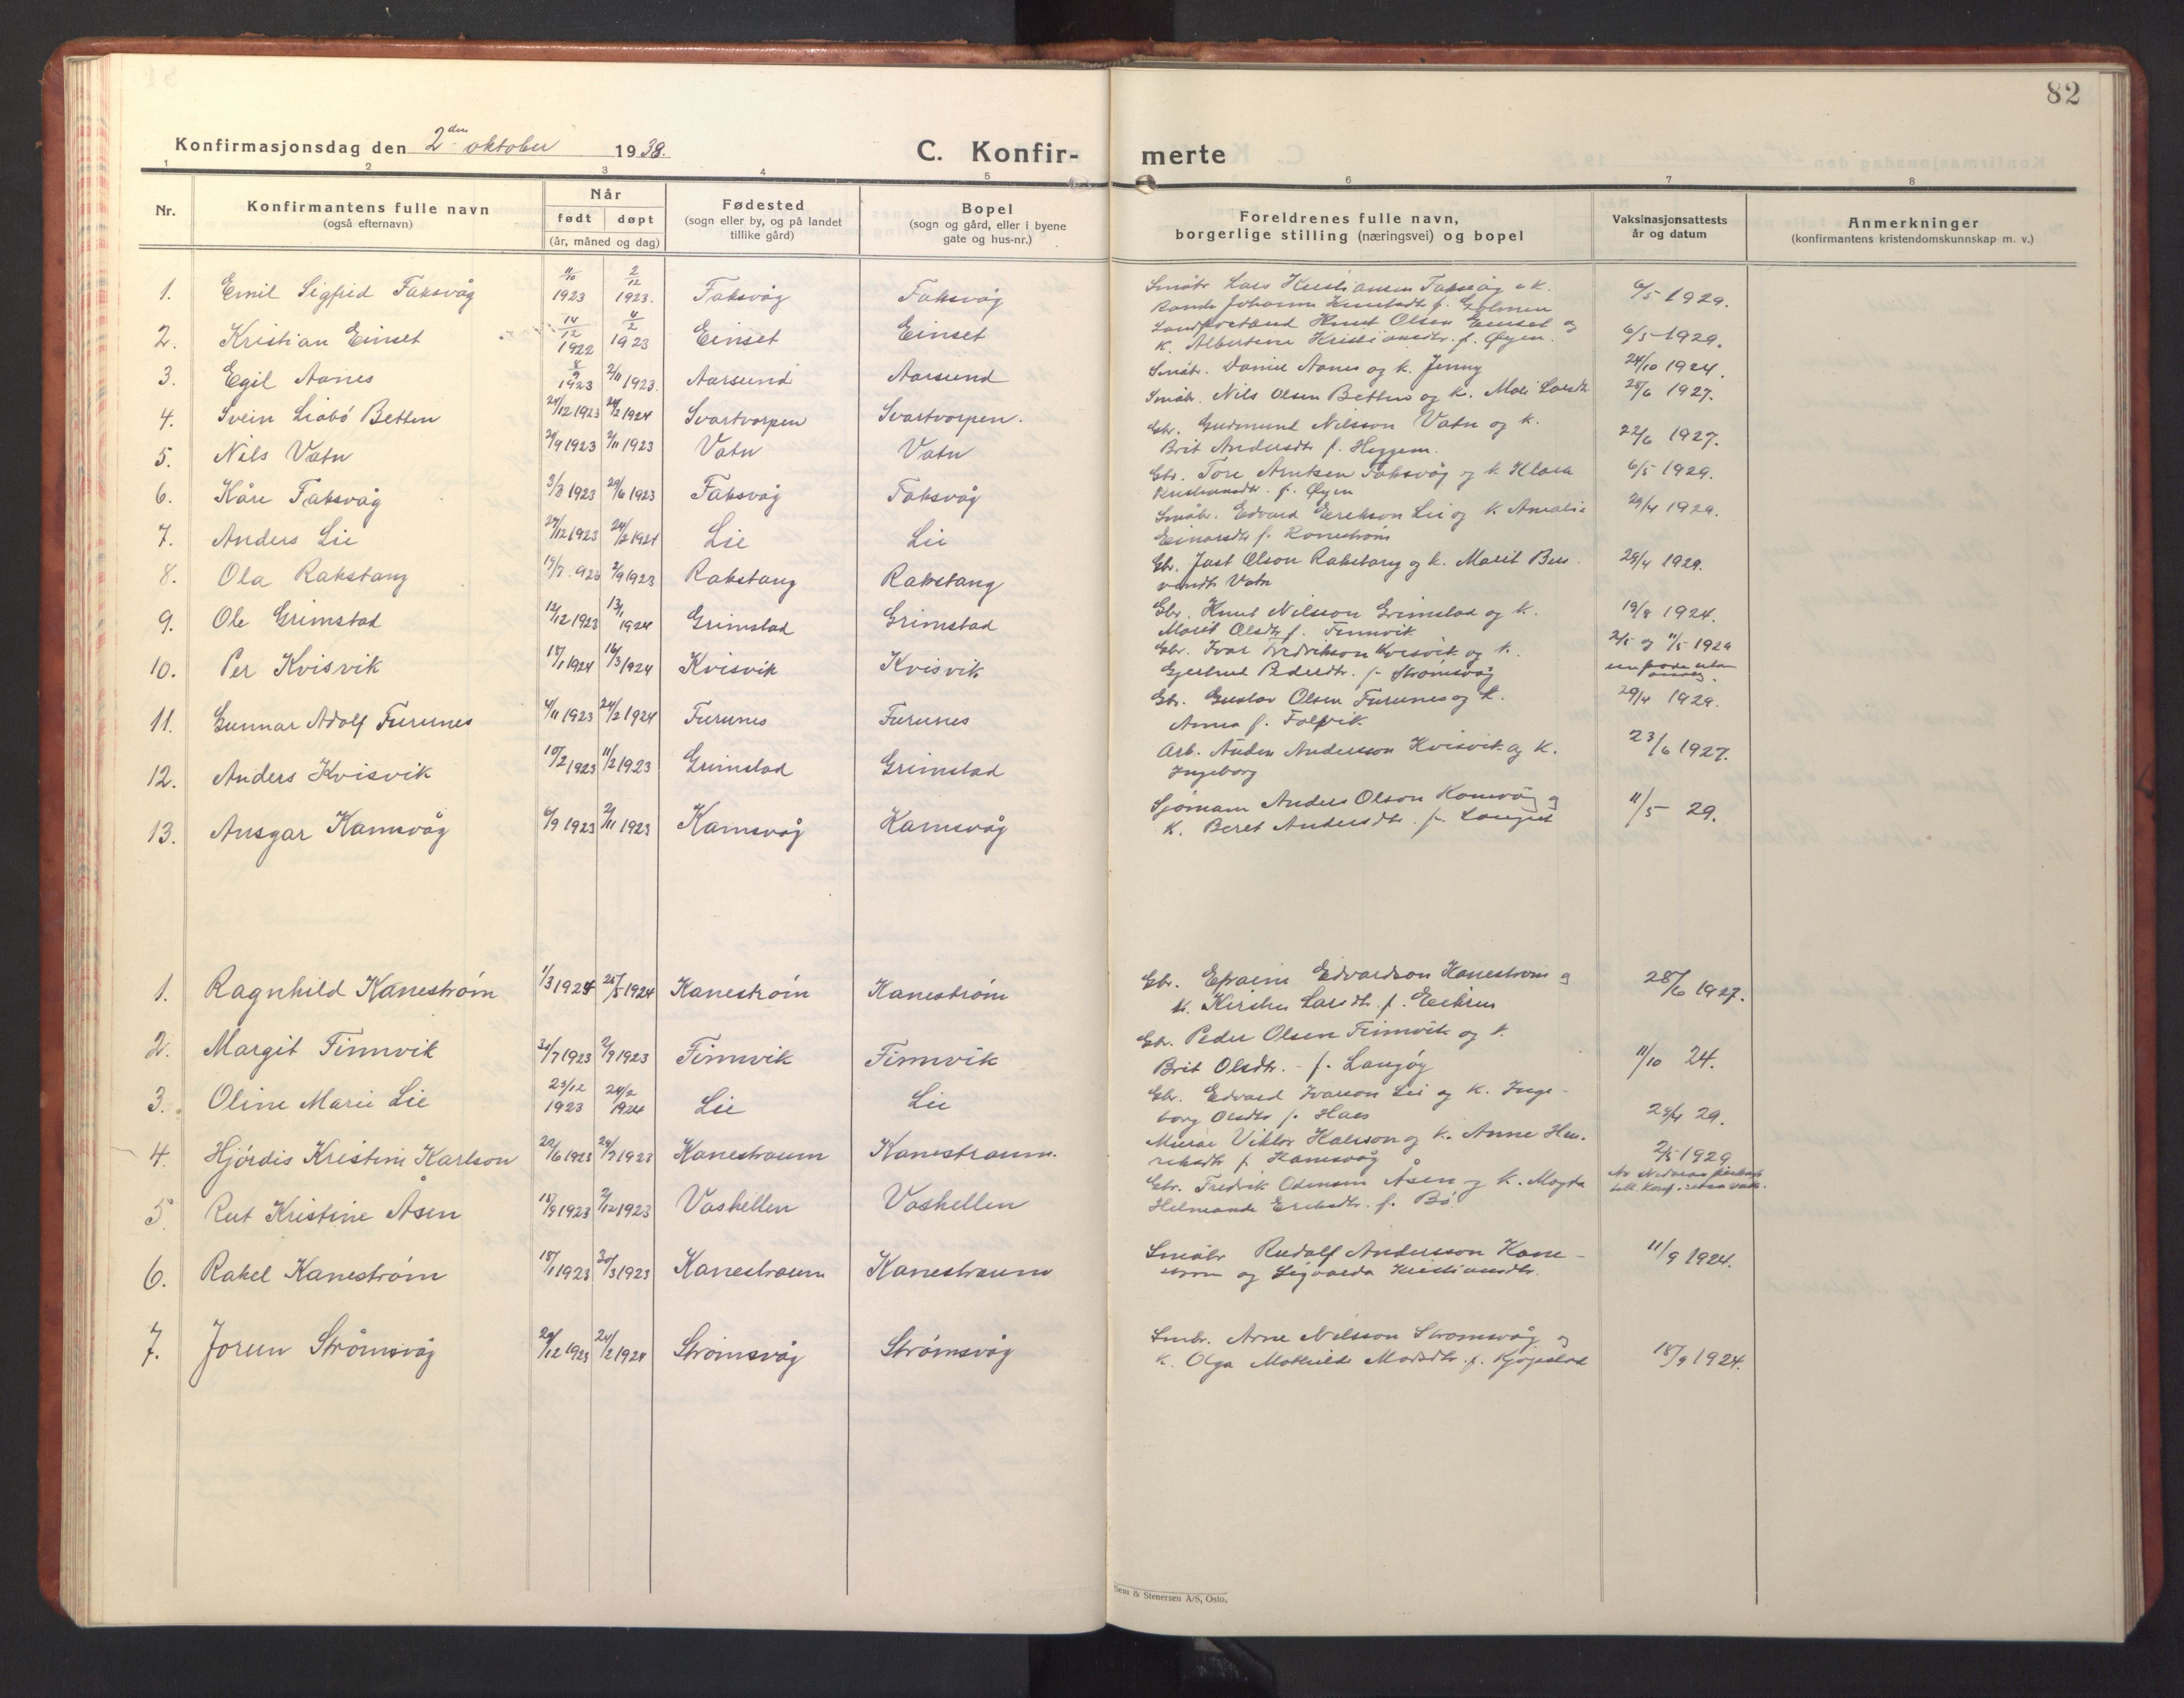 82
Konfirmasjonsdag den 2den oktober 1938.
C. Konfir- merte
1 2 3 4 5 6 7 8
Nr.
Konfirmantens fulle navn
(også efternavn)
Når
født døpt
(år, måned og dag)
Fødested
(sogn eller by, og på landet
tillike gård)
Bopel
(sogn og gård, eller i byene
gate og hus-nr.)
Foreldrenes fulle navn,
borgerlige stilling (næringsvei) og bopel
Vaksinasjonsattests
år og datum
Anmerkninger
(konfirmantens kristendomskunnskap m. v.)
1. Emil Sigfrid Faksvåg 11/10 1923 2/12 1923. Faksvåg Faksvåg Småbr. Lars Kristiansen Faksvåg o k. 6/5 1929.
Johanna Knutsdtr f.
2. Kristian Einset 14/12 1922 4/2 1923 Einset Einset Knut Olsen Einset og 6/5 1929.
k. Albertine Kristiansdtr. f. Øyen.
3. Egil Aanes 8/9 1923 2/11 1923. Aarsund Aarsund Småbr. Daniel Aanes og k. Jenny 24/10 1924.
4. Svein Liabö Betten 24/12 1923 24/2 1924 Svartvorpen Svartvorpen. Småbr. Nils Olsen Betten og k. Mali Larsdtr. 28/6 1927.
5. Nils Vatn 2/9 1923 2/11 1923 Vatn Vatn Gbr. Gudmund Nilsson Vatn og k. 22/6 1927.
Brit Andersdtr f. Heggem.
6. Kåre Faksvåg 3/3 1923 29/6 1923 Faksvåg Faksvåg Gbr. Tore Arntsen Faksvåg og k. Klara 6/5 1929.
Kristiansdtr. f. Øyen
7. Anders Lie 27/12 1923 24/2 1924 Lie Lie Småbr. Edvard Erikson Lie og k. Amalie 29/4 1929.
Einarsdtr f.
8. Ola Rakstang 2/9 1923 Rakstang Rakstang Gbr. Just Olson Rakstang og k. Marit 29/4 1929.
Vatn
9. Ole Grimstad 12/12 1923 13/1 1924 Grimstad Grimstad Gbr. Knut Nilsson Grimstad og k. 19/8 1924.
Marit Olsdtr f. Finnvik
10. Per Kvisvik 18/1 1924 16/3 1924 Kvisvik Kvisvik Gbr. Ivar Fredrikson Kvisvik og k. 2/5 og 11/5 1929
Gjertrud Pedersdtr. f. Strömsvåg
11. Gunnar Adolf Furunes 4/11 1923 24/2 1924 Furunes Furunes Gbr. Gustav Olsen Furunes og k. 29/4 1929.
Anna f. Folvik
12. Anders Kvisvik 10/2 1923 11/2 1923 Grimstad Grimstad Arb. Anders Anderson Kvisvik og k. 23/6 1927.
Ingeborg
13. Ansgar Kamsvåg 6/9 1923 2/11 1923 Kamsvåg Kamsvåg Sjömann Anders Olson Kamsvåg og 11/5 29.
k. Beret Andersdtr. f.
1. Ragnhild Kaneström 1/3 1924 25/5 1924 Kaneström Kaneström Gbr. Efraim Edvardson Kaneström og 28/6 1927.
k. Kirsten Larsdtr. f.
2. Margit Finnvik 30/7 1923 2/9 1923 Finnvik Finnvik Gbr. Peder Olsen Finnvik og k. 11/10 24.
Brit Olsdtr. f. Langöy
3. Oline Marie Lie 23/12 1923 24/2 1924 Lie Lie Gbr. Edvard Ivarson Lie og k. Inge- 29/4 29.
borg Olsdtr f. Haas
4. Hjördis Kristine Karlson 20/6 1923 29/7 1923 Kanestraum Kanestraum. Murar Viktor Karlson og k. Anne Hen- 2/5 1929
riksdtr f. Kamsvåg
5. Rut Kristine Åsen 18/9 1923 2/12 1923 Vashellen Vashellen Gbr. Fredrik Odinson Åsen og k. Magda
Eriksdtr. f. Bö
6. Rakel Kaneström 18/1 1923 30/3 1923 Kanestraum Kanestraum Småbr Rudolf Andersson Kane- 11/9 1924.
ström og Sigvarda Kristiansdtr.
7. Jorun Strömsvåg 29/12 1923 24/2 1924 Strömsvåg Strömsvåg Småbr. Arne Nilsson Strömsvåg og 18/9 1924.
k. Olga Mathilde Madsdtr. f.
Sem & Stenersen A/S, Oslo.